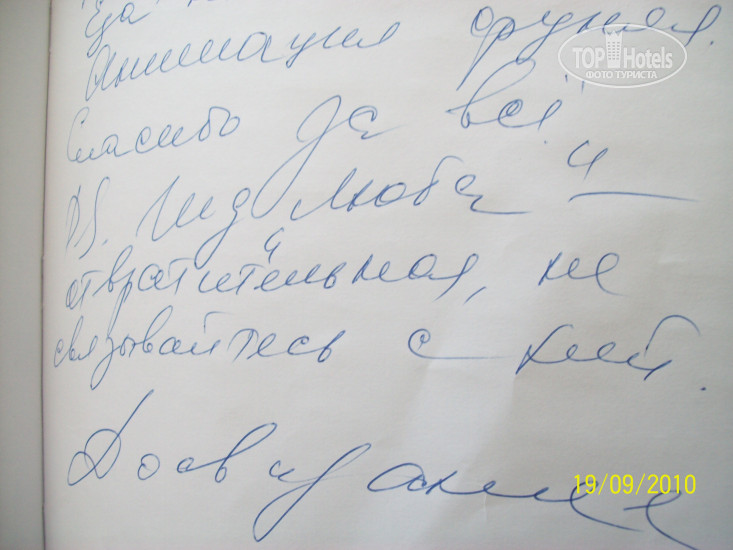 Еда
Анимация фуня.
TOP Hotels
ФОТО ТУРИСТА
Спасибо за всё
P.S. Гид Люба —
отвратительная, не
связывайтесь с ней.
Досвидание
19/09/2010